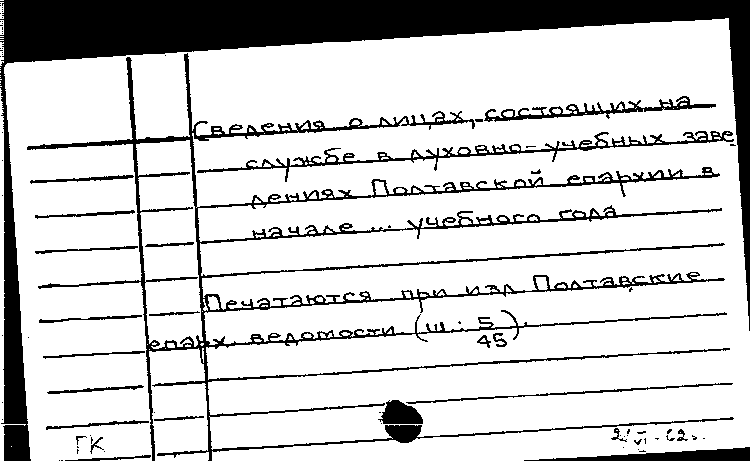 Сведения о лицах, состоящих на
службе в духовно-учебных заве
дениях Полтавской епархии в
начале ... учебного года
Печатаются при изд. Полтавские
епарх. ведомости. (ш. 5/45).
ГК